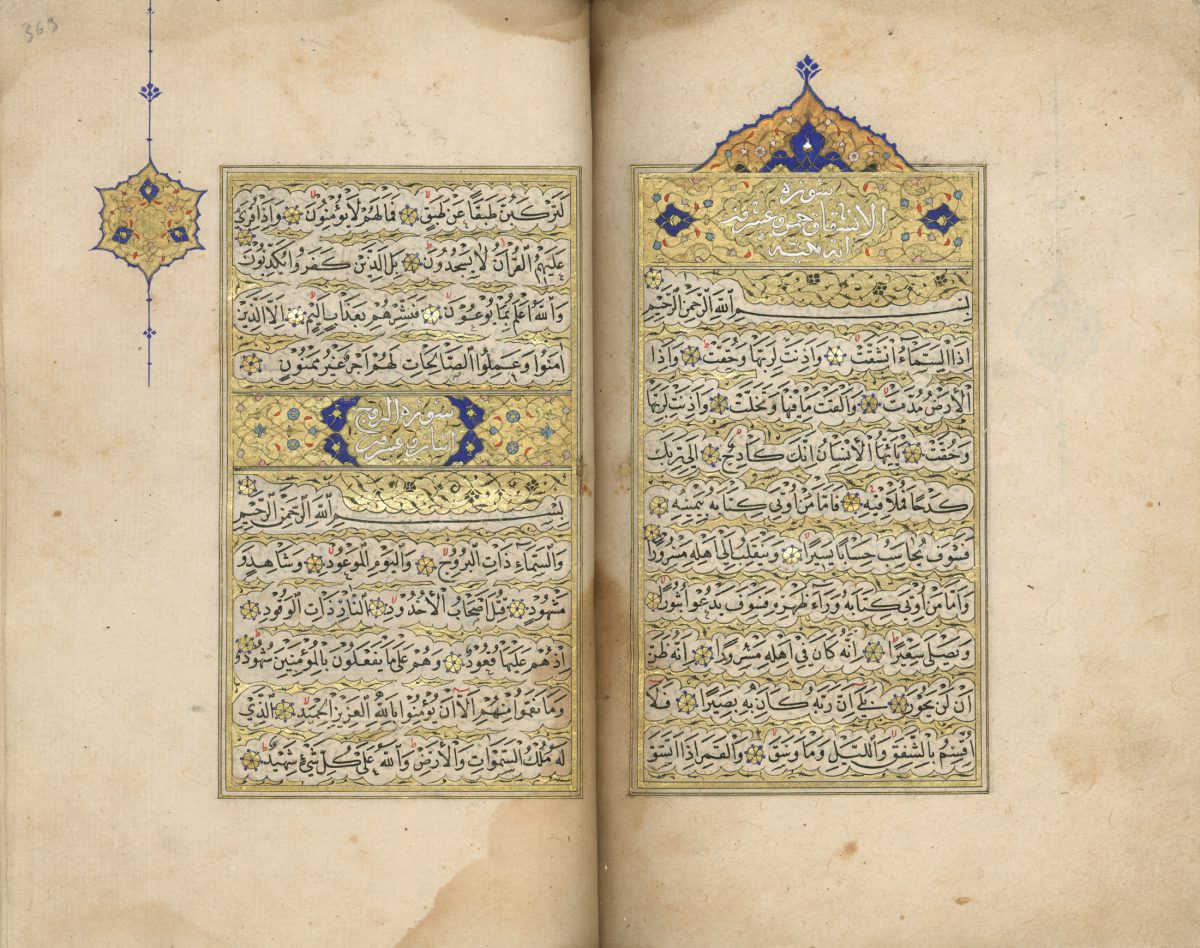 سورة
الانشقاق خمس وعشرون
اية مكية
بسم الله الرحمن الرحيم
اِذَا السَّمَاءُ انْشَقَّتْ وَاَذِنَتْ لِرَبِّهَا وَحُقَّتْ وَاِذَا
الْاَرْضُ مُدَّتْ وَاَلْقَتْ مَا فِيهَا وَتَخَلَّتْ وَاَذِنَتْ لِرَبِّهَا
وَحُقَّتْ يَا اَيُّهَا الْاِنْسَانُ اِنَّكَ كَادِحٌ اِلٰى رَبِّكَ
كَدْحًا فَمُلَاقِيهِ فَاَمَّا مَنْ اُوتِيَ كِتَابَهُ بِيَمِينِهِ
فَسَوْفَ يُحَاسَبُ حِسَابًا يَسِيرًا وَيَنْقَلِبُ اِلٰى اَهْلِهِ مَسْرُورًا
وَاَمَّا مَنْ اُوتِيَ كِتَابَهُ وَرَاءَ ظَهْرِهِ فَسَوْفَ يَدْعُوا ثُبُورًا
وَيَصْلٰى سَعِيرًا اِنَّهُ كَانَ فِي اَهْلِهِ مَسْرُورًا اِنَّهُ ظَنَّ
اَنْ لَنْ يَحُورَ بَلٰى اِنَّ رَبَّهُ كَانَ بِهِ بَصِيرًا فَلَا
اُقْسِمُ بِالشَّفَقِ وَاللَّيْلِ وَمَا وَسَقَ وَالْقَمَرِ اِذَا اتَّسَقَ
369
لَتَرْكَبُنَّ طَبَقًا عَنْ طَبَقٍ فَمَا لَهُمْ لَا يُؤْمِنُونَ وَاِذَا قُرِئَ
عَلَيْهِمُ الْقُرْاٰنُ لَا يَسْجُدُونَ بَلِ الَّذِينَ كَفَرُوا يُكَذِّبُونَ
وَاللّٰهُ اَعْلَمُ بِمَا يُوعُونَ فَبَشِّرْهُمْ بِعَذَابٍ اَلِيمٍ اِلَّا الَّذِينَ
اٰمَنُوا وَعَمِلُوا الصَّالِحَاتِ لَهُمْ اَجْرٌ غَيْرُ مَمْنُونٍ
سورة البروج
اثنان وعشرون
بِسْمِ اللّٰهِ الرَّحْمٰنِ الرَّحِيمِ
وَالسَّمَاءِ ذَاتِ الْبُرُوجِ وَالْيَوْمِ الْمَوْعُودِ وَشَاهِدٍ وَ
مَشْهُودٍ قُتِلَ اَصْحَابُ الْاُخْدُودِ النَّارِ ذَاتِ الْوَقُودِ
اِذْ هُمْ عَلَيْهَا قُعُودٌ وَهُمْ عَلٰى مَا يَفْعَلُونَ بِالْمُؤْمِنِينَ شُهُودٌ
وَمَا نَقَمُوا مِنْهُمْ اِلَّا اَنْ يُؤْمِنُوا بِاللّٰهِ الْعَزِيزِ الْحَمِيدِ الَّذِي
لَهُ مُلْكُ السَّمٰوَاتِ وَالْاَرْضِ وَاللّٰهُ عَلٰى كُلِّ شَيْءٍ شَهِيدٌ